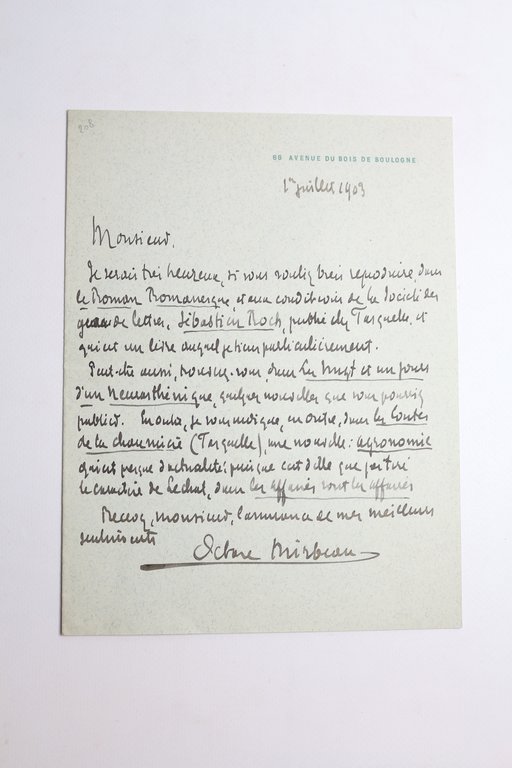 208
68 AVENUE DU BOIS DE BOULOGNE
1er juillet 1903
Monsieur,
Je serais très heureux, si vous vouliez bien reproduire, dans
le Roman Romanesque, et aux conditions de la Société des
gens de lettres, Sébastien Roch, publié chez Fasquelle, et
qui est un livre auquel je tiens particulièrement.
Peut-être aussi, trouverez-vous, dans Les Vingt et un jours
d'un Neurasthénique, quelques nouvelles que vous pourriez
publier. En outre, je vous indique, dans les Contes
de la chaumière (Fasquelle), une nouvelle : agronomie
qui est presque d'actualité, puisque c'est d'elle que j'ai tiré
le caractère de Lechat, dans les affaires sont les affaires
Recevez, monsieur, l'assurance de mes meilleurs
sentiments
Octave Mirbeau